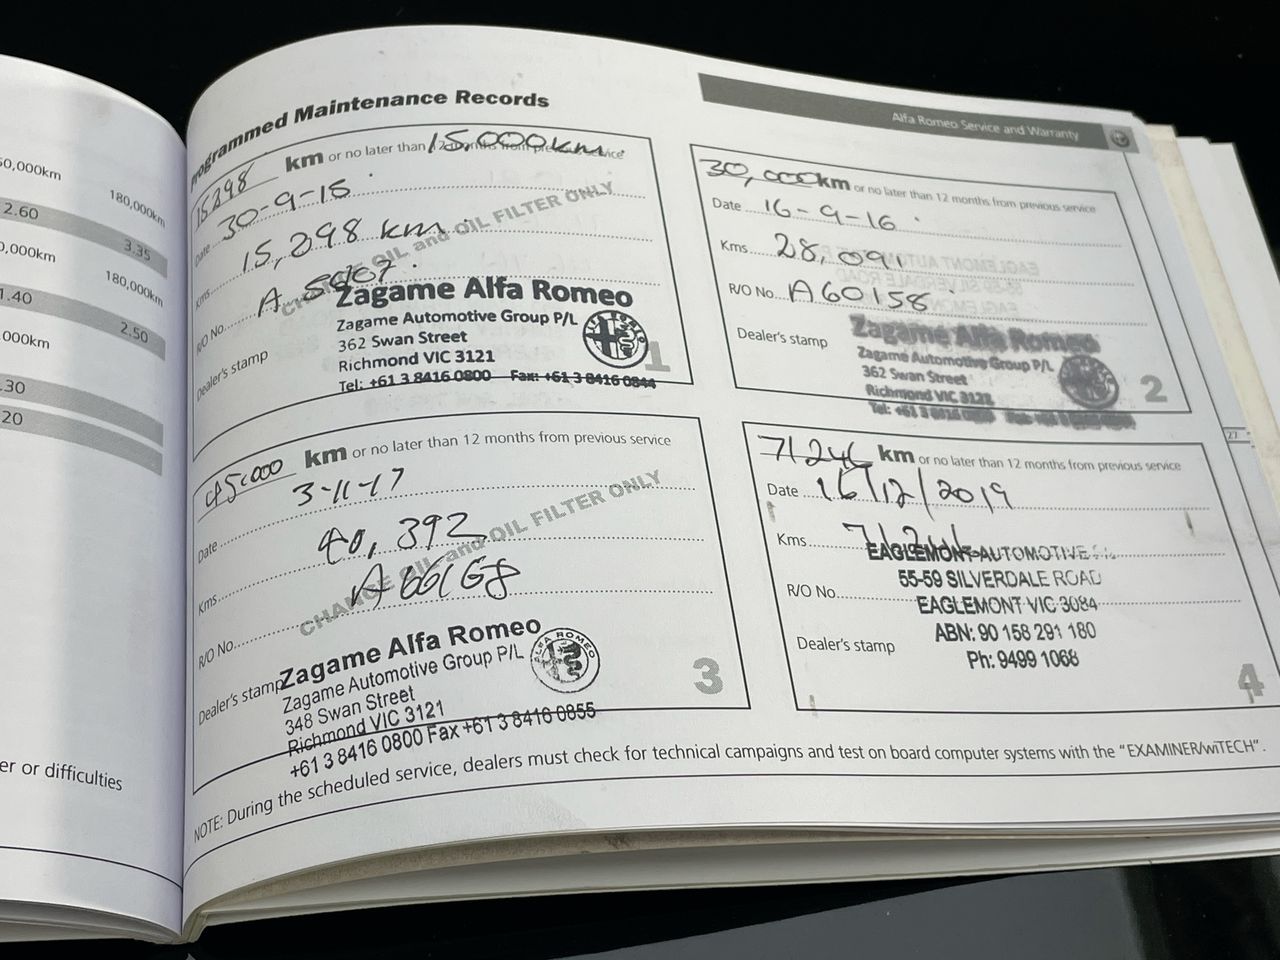 0,000km 180,000km
2.60 3.35
0,000km 180,000km
1.40 2.50
000km
.30
20
er or difficulties
Programmed Maintenance Records
15298 km or no later than 12 months from previous service
15,000km.
Date 30-9-15
Kms 15,298 km
CHANGE OIL and OIL FILTER ONLY
R/O No. A
Dealer's stamp
Zagame Alfa Romeo
Zagame Automotive Group P/L
362 Swan Street
Richmond VIC 3121
Tel: +61 3 8416 0800 Fax: +61 3 8416 0844
1
Alfa Romeo Service and Warranty
30,000km or no later than 12 months from previous service
Date 16-9-16
Kms 28,091
R/O No. A60158
Dealer's stamp
Zagame Alfa Romeo
Zagame Automotive Group P/L
362 Swan Street
Richmond VIC 3121
Tel: +61 3 8416 0800
2
45,000 km or no later than 12 months from previous service
Date 3-11-17
Kms 40,392
CHANGE OIL and OIL FILTER ONLY
R/O No. A66168
Dealer's stamp
Zagame Alfa Romeo
Zagame Automotive Group P/L
348 Swan Street
Richmond VIC 3121
+61 3 8416 0800 Fax +61 3 8416 0855
ALFA ROMEO
3
71246 km or no later than 12 months from previous service
Date 16/12/2019
Kms
R/O No.
Dealer's stamp
EAGLEMONT AUTOMOTIVE
55-59 SILVERDALE ROAD
EAGLEMONT VIC 3084
ABN: 90 158 291 180
Ph: 9499 1068
4
27
NOTE: During the scheduled service, dealers must check for technical campaigns and test on board computer systems with the "EXAMINER/wiTECH".